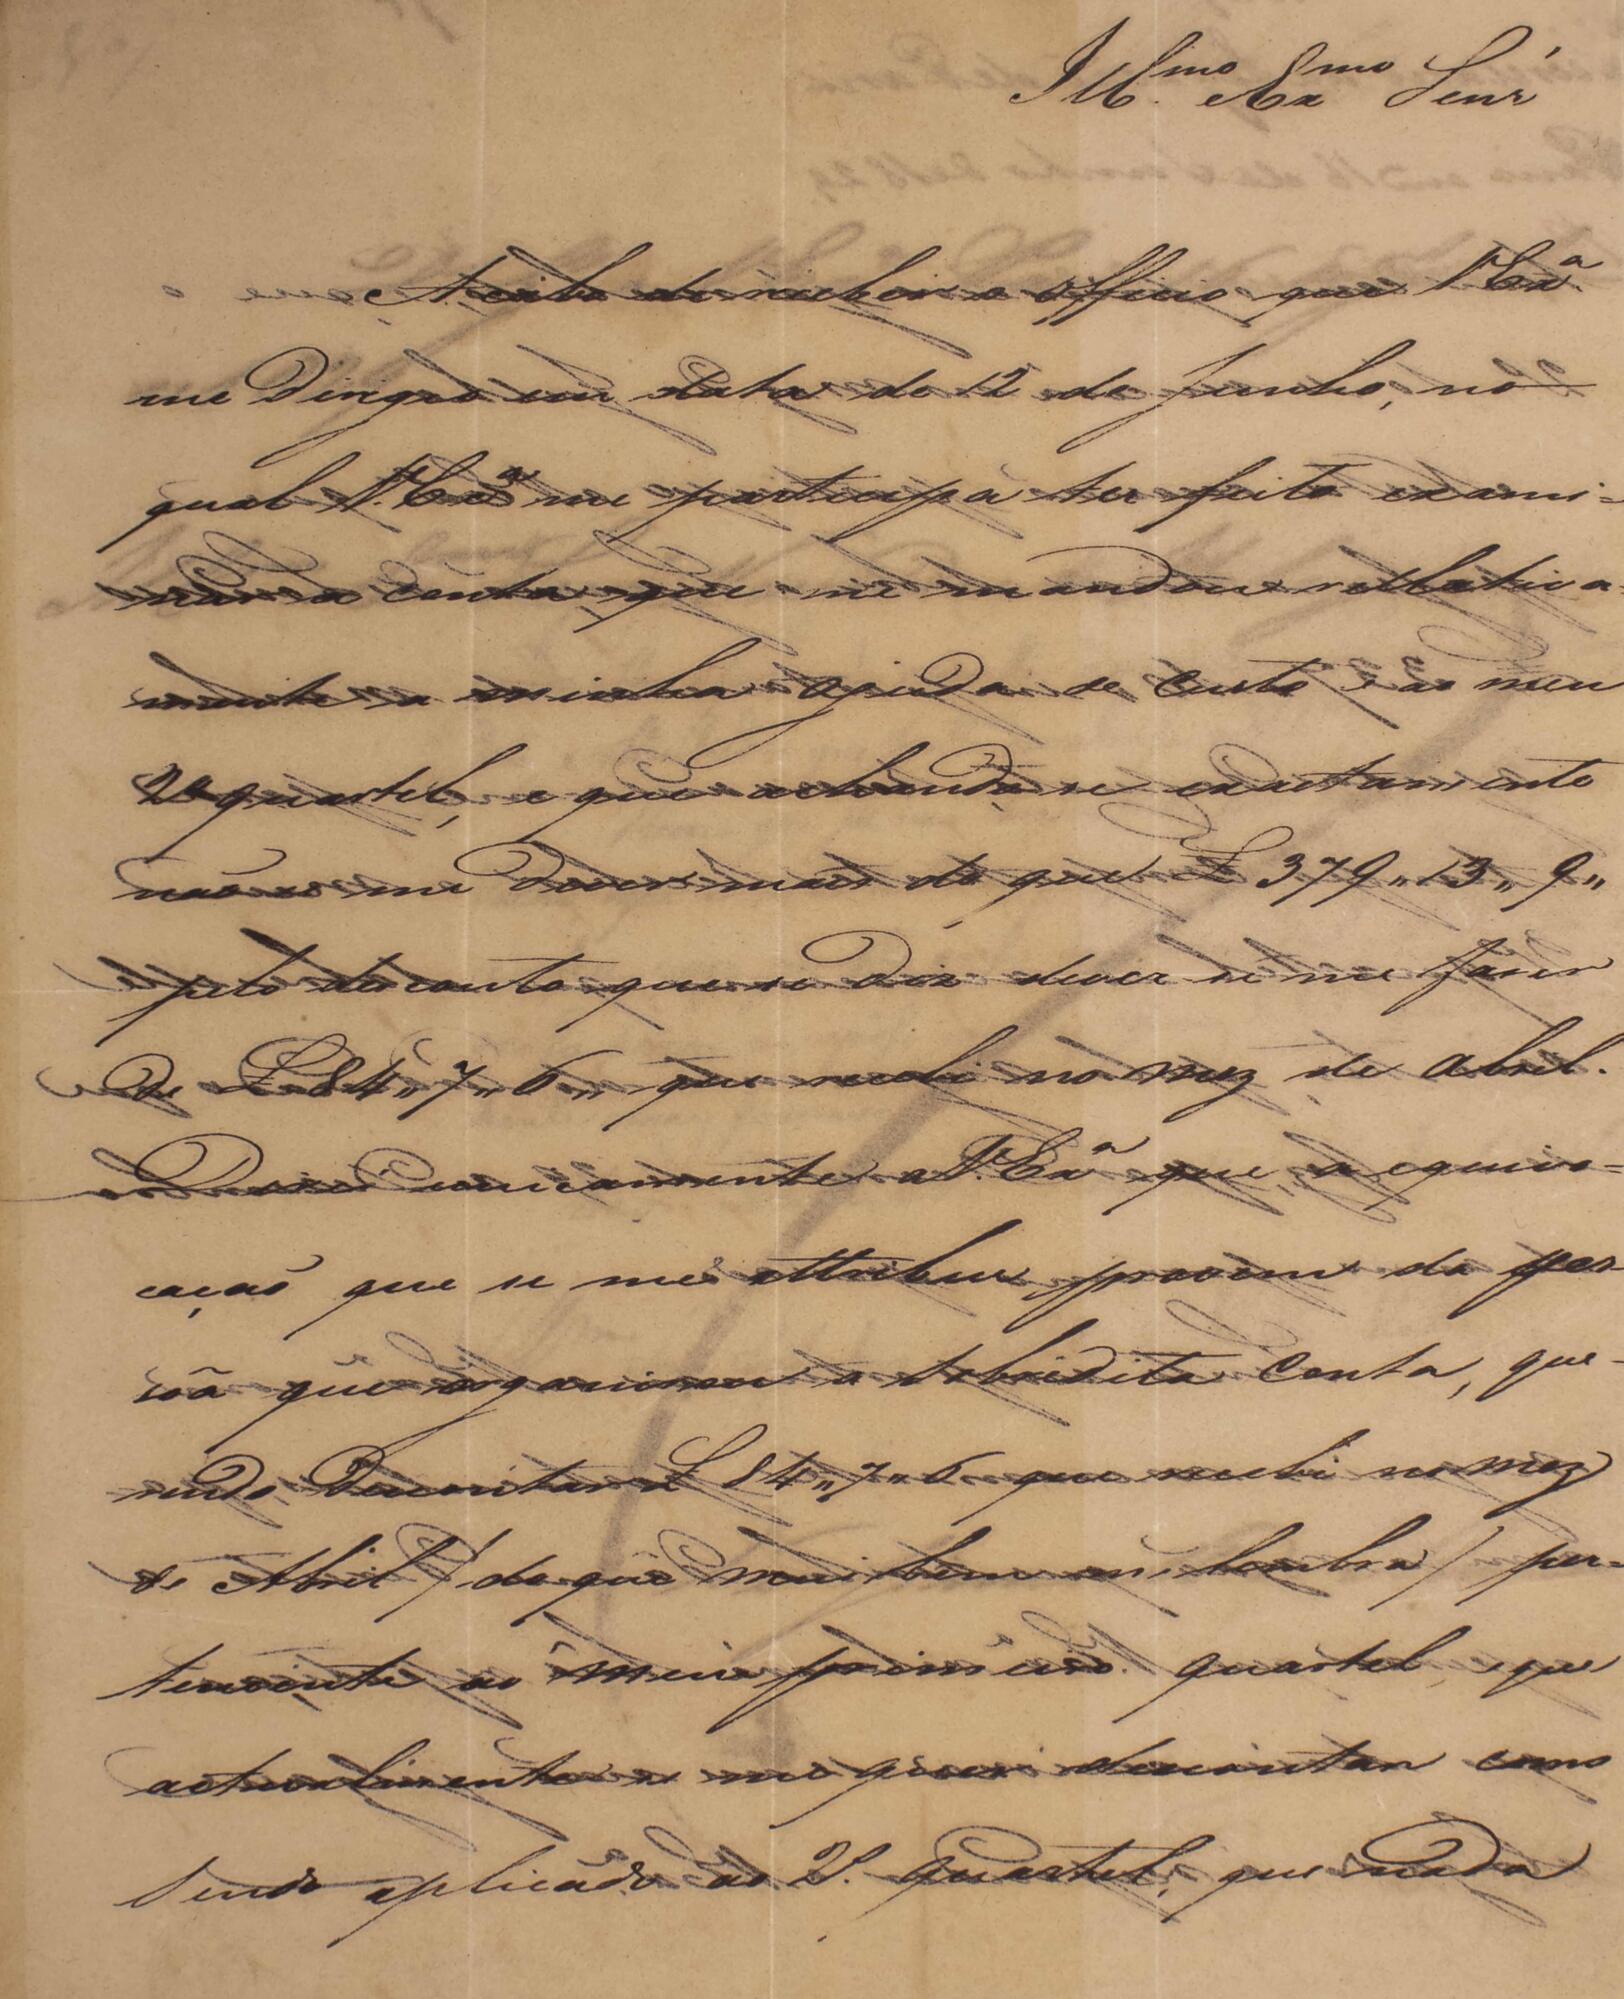 Ill.mo e Ex.mo Senr
Acabo de receber o officio, que V. Ex.ª
me dirigio em data de 12 de Junho, no
qual V. Ex.ª me participa ter feito exami-
nar a Conta, que me mandou relativa-
mente a minha Ajuda de Custo, e ao meu
2º quartel, e que achando-se exactamente
não se me dever mais do que £ 379,, 13,, 9,,
pelo desconto que se diz dever se me fazer
de £ 84,, 7,, 6,, que recebi no mez de Abril.
Direi unicamente a V. Ex.ª que, a equivo-
cação que se me attribue, provem da pes-
soa que organisou a sobredita Conta, que-
rendo descontar £ 84,, 7,, 6 que recebi no mez
de Abril (do que mui bem me lembra) per-
tencente ao meu primeiro quartel, e que
actualmente se me quer descontar como
sendo aplicado ao 2º. quartel, que nada